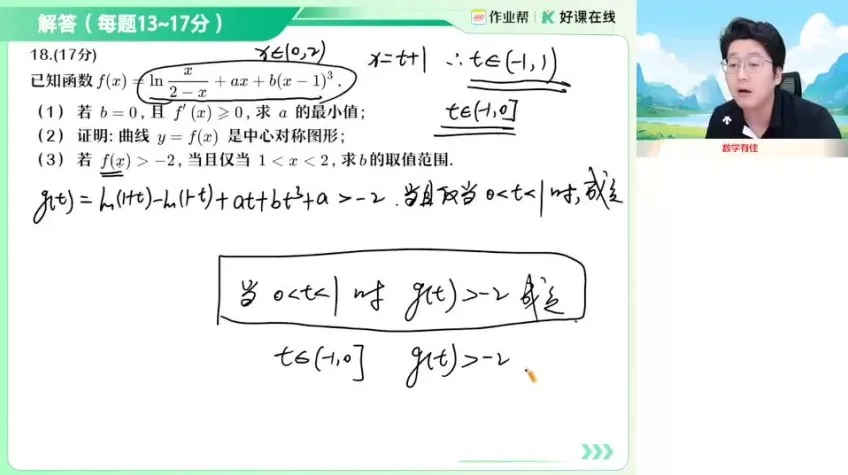 解答（每题13~17分）
作业帮 好课在线
18.(17分)
x∈(0,2)
x=t+1 ∴t∈(-1,1)
已知函数 f(x)=ln x/(2-x)+ax+b(x-1)³.
t∈(-1,0]
（1）若 b=0,且 f′(x)⩾0,求 a 的最小值;
（2）证明:曲线 y=f(x) 是中心对称图形;
（3）若 f(x)>-2,当且仅当 1<x<2,求b的取值范围.
数学有佳
g(t)=ln(1+t)-ln(1-t)+at+bt³+a>-2.当且仅当0<t<1时,成立
当 0<t<1 时 g(t)>-2 成立
t∈(-1,0] g(t)>-2